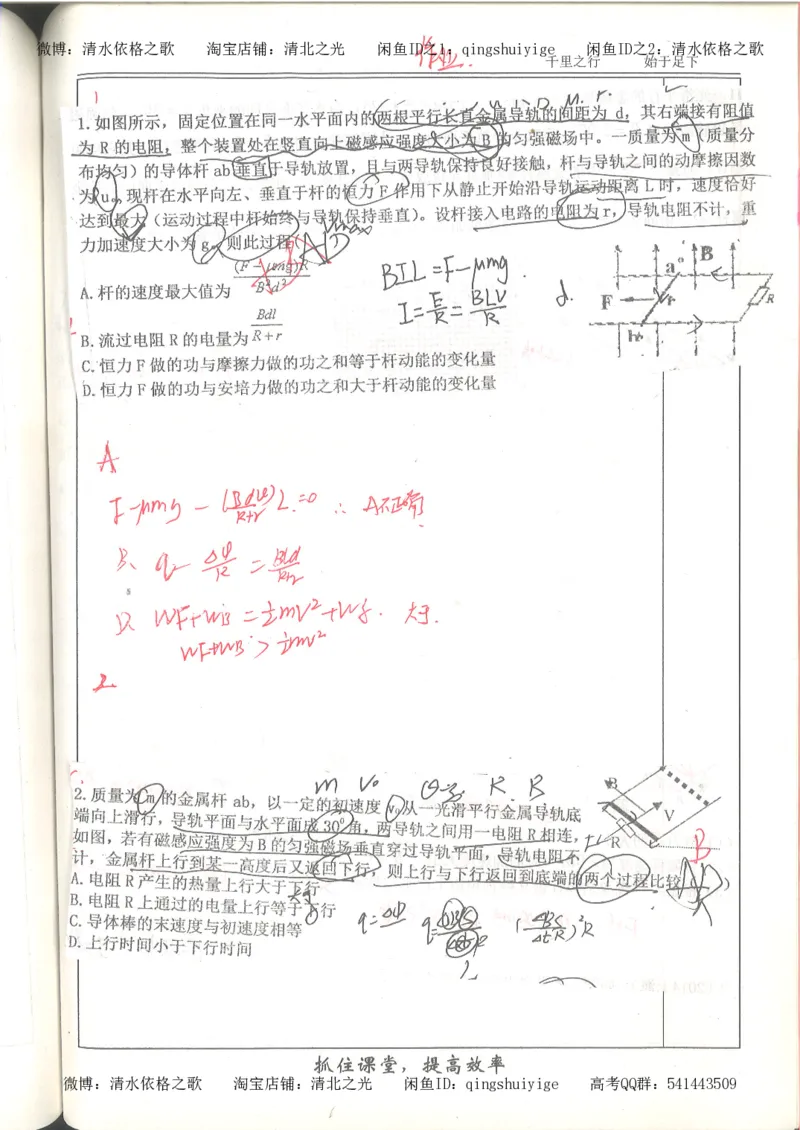 微博：清水依格之歌 淘宝店铺：清北之光 闲鱼ID之1：qingshuiyige 闲鱼ID之2：清水依格之歌
作业.
千里之行 始于足下
1.如图所示，固定位置在同一水平面内的两根平行长直金属导轨的间距为 d，其右端接有阻值
为 R 的电阻，整个装置处在竖直向上磁感应强度大小为 B 的匀强磁场中。一质量为 m（质量分
布均匀）的导体杆 ab 垂直于导轨放置，且与两导轨保持良好接触，杆与导轨之间的动摩擦因数
为 u。现杆在水平向左、垂直于杆的恒力 F 作用下从静止开始沿导轨运动距离 L 时，速度恰好
达到最大（运动过程中杆始终与导轨保持垂直）。设杆接入电路的电阻为 r，导轨电阻不计，重
力加速度大小为 g。则此过程（
A.杆的速度最大值为 (F-μmg)R / B²d²
B.流过电阻 R 的电量为 Bdl / R+r
C.恒力 F 做的功与摩擦力做的功之和等于杆动能的变化量
D.恒力 F 做的功与安培力做的功之和大于杆动能的变化量
BIL=F-μmg.
I=E/R=BLV/R
d.
a B
F r R
b
A
F-μmg-(Bdv)/(R+r) L=0 ∴ A不正确
B. q=Δφ/R=BLd/R+r
D. WF+WB=½mv²+Wf. 大于.
WF+WB>½mv²
2
m v₀ R. B
2.质量为 m 的金属杆 ab，以一定的初速度 v₀从一光滑平行金属导轨底
端向上滑行，导轨平面与水平面成 30°角，两导轨之间用一电阻 R 相连，
如图，若有磁感应强度为 B 的匀强磁场垂直穿过导轨平面，导轨电阻不
计，金属杆上行到某一高度后又返回下行，则上行与下行返回到底端的两个过程比较（ ）
A.电阻 R 产生的热量上行大于下行
B.电阻 R 上通过的电量上行等于下行
C.导体棒的末速度与初速度相等
D.上行时间小于下行时间
B
V
R
B
(ΔBS/ΔtR)²R
抓住课堂，提高效率
微博：清水依格之歌 淘宝店铺：清北之光 闲鱼ID：qingshuiyige 高考QQ群：541443509